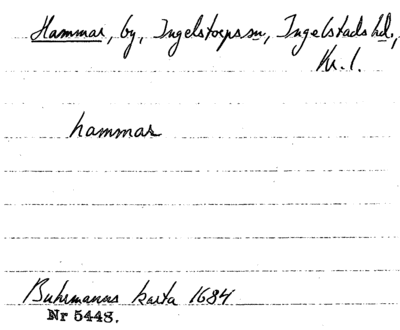 Hammar, by, Ingelstorps sn, Ingelstads hd.,
Kr. l.
hammar
Buhrmanns karta 1684
Nr 5448.